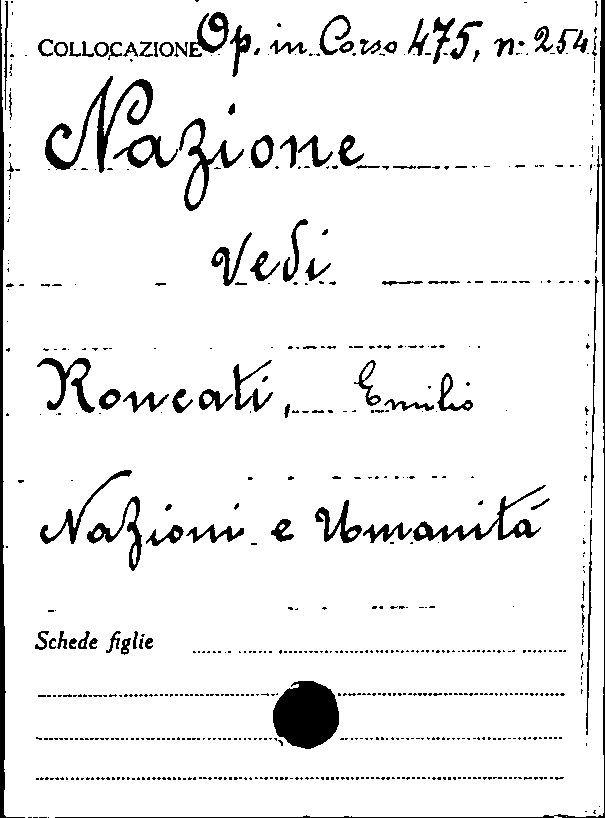 COLLOCAZIONE Op. in Corso 475, n. 254
Nazione
Vedi
Roncati, Emilio
Nazioni e Umanità
Schede figlie